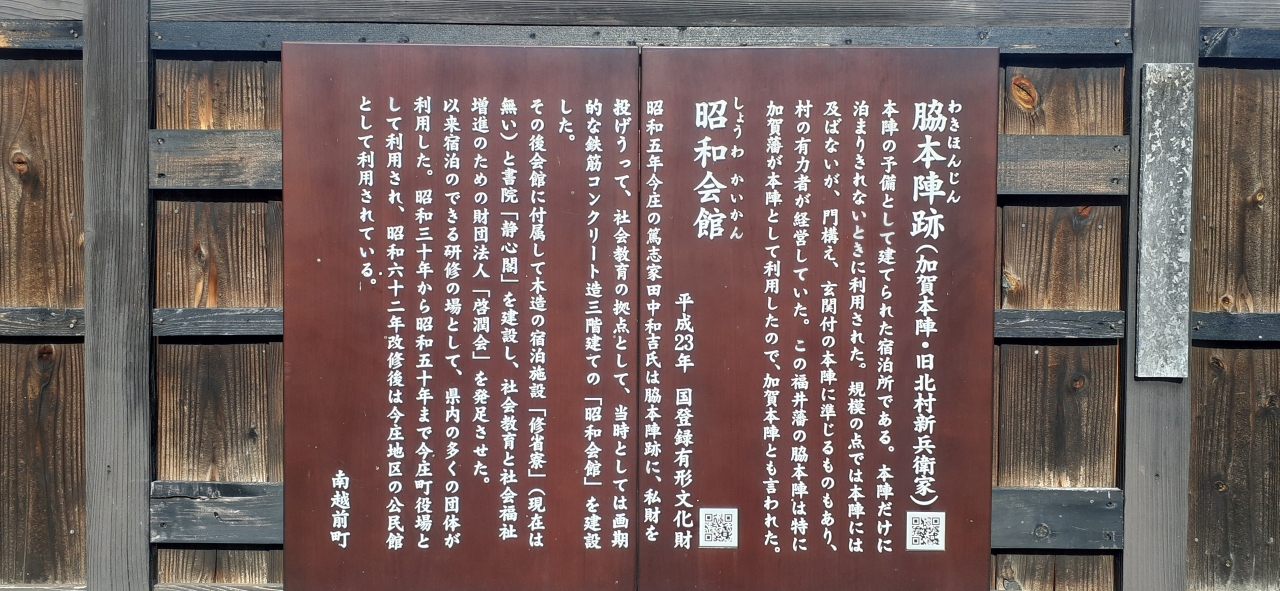 わきほんじん
脇本陣跡(加賀本陣・旧北村新兵衛家)
本陣の予備として建てられた宿泊所である。本陣だけに
泊まりきれないときに利用された。規模の点では本陣には
及ばないが、門構え、玄関付の本陣に準じるものもあり、
村の有力者が経営していた。この福井藩の脇本陣は特に
加賀藩が本陣として利用したので、加賀本陣とも言われた。
しょうわ かいかん
昭和会館
平成23年 国登録有形文化財
昭和五年今庄の篤志家田中和吉氏は脇本陣跡に、私財を
投げうって、社会教育の拠点として、当時としては画期
的な鉄筋コンクリート造三階建ての「昭和会館」を建設
した。
その後会館に付属して木造の宿泊施設「修省寮」(現在は
無い)と書院「静心閣」を建設し、社会教育と社会福祉
増進のための財団法人「啓潤会」を発足させた。
以来宿泊のできる研修の場として、県内の多くの団体が
利用した。昭和三十年から昭和五十年まで今庄町役場と
して利用され、昭和六十二年改修後は今庄地区の公民館
として利用されている。
南越前町